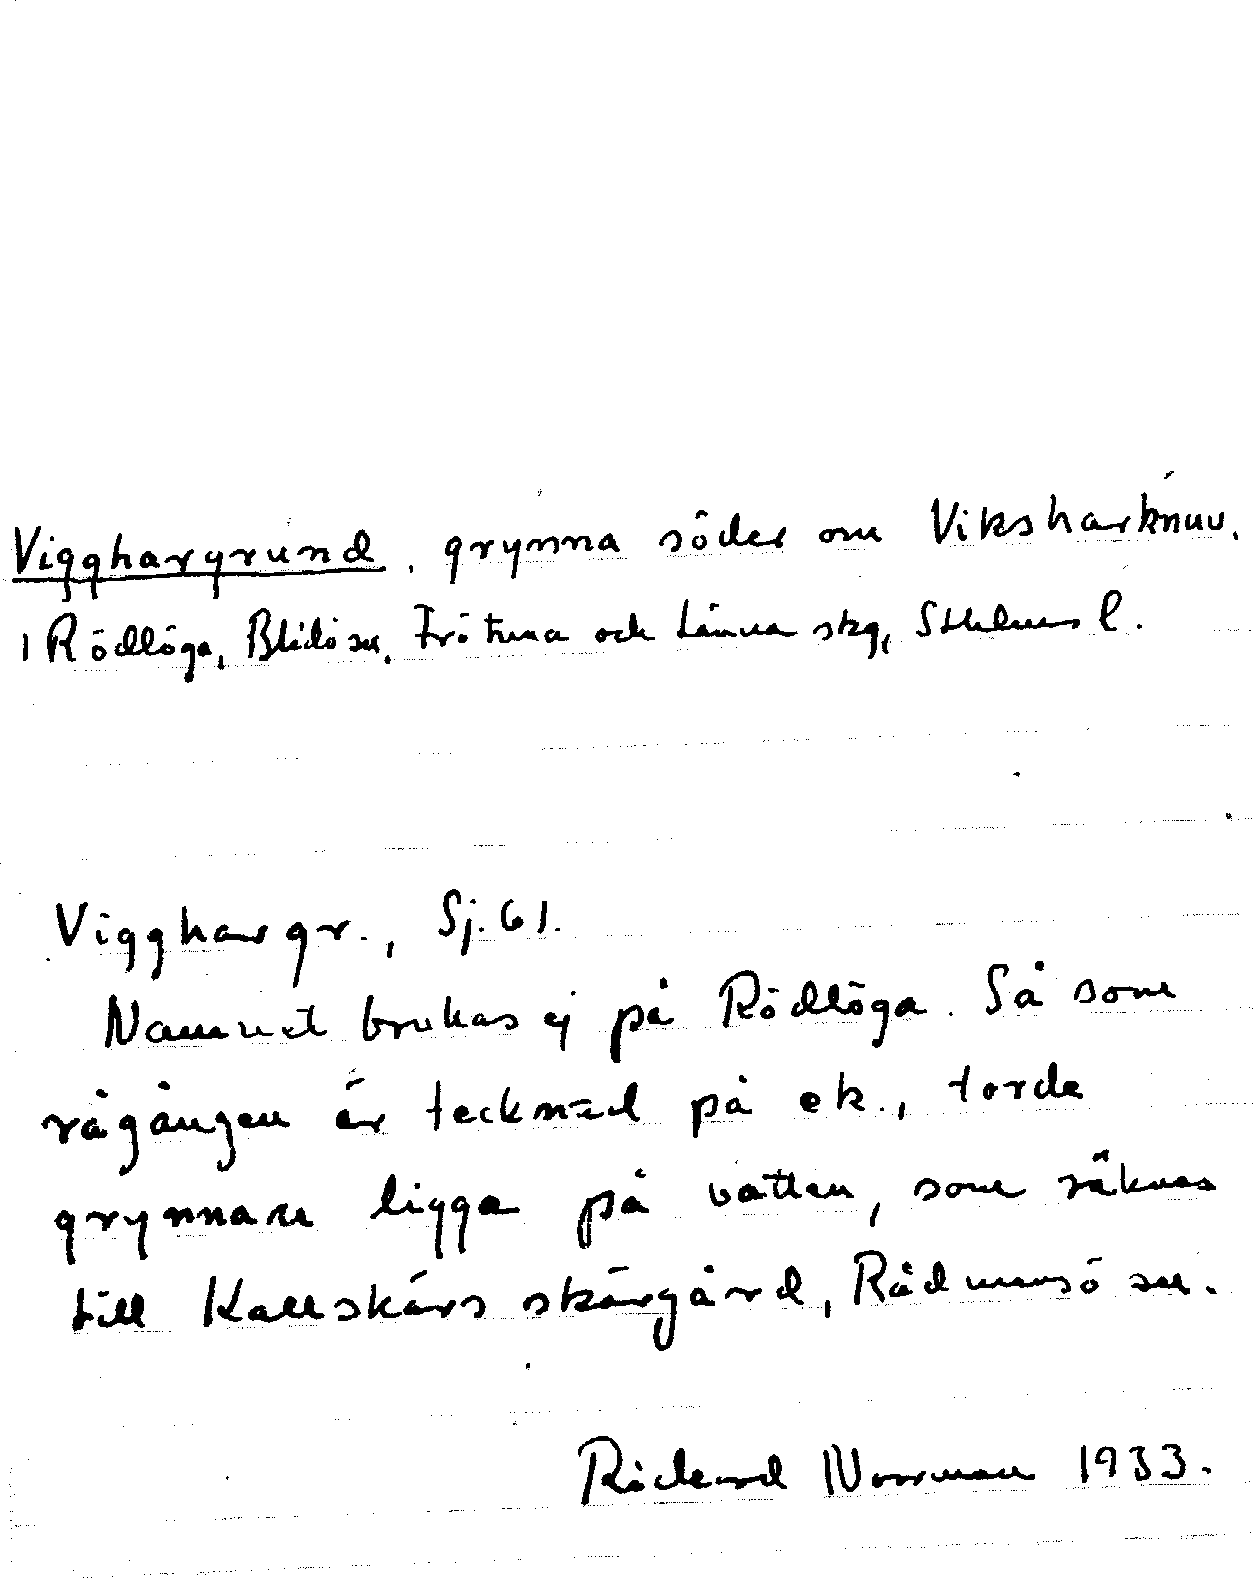 Vigghargrund, grynna söder om Viksharknuv.
i Rödlöga, Blidö sn, Frötuna och Länna skg, Sthlms l.
Vigghargr., Sj. 61.
Namnet brukas ej på Rödlöga. Så som
rågången är tecknad på ek., torde
grynnan ligga på vatten, som räknas
till Kallskärs skärgård, Rådmansö sn.
Rickard Norrman 1933.